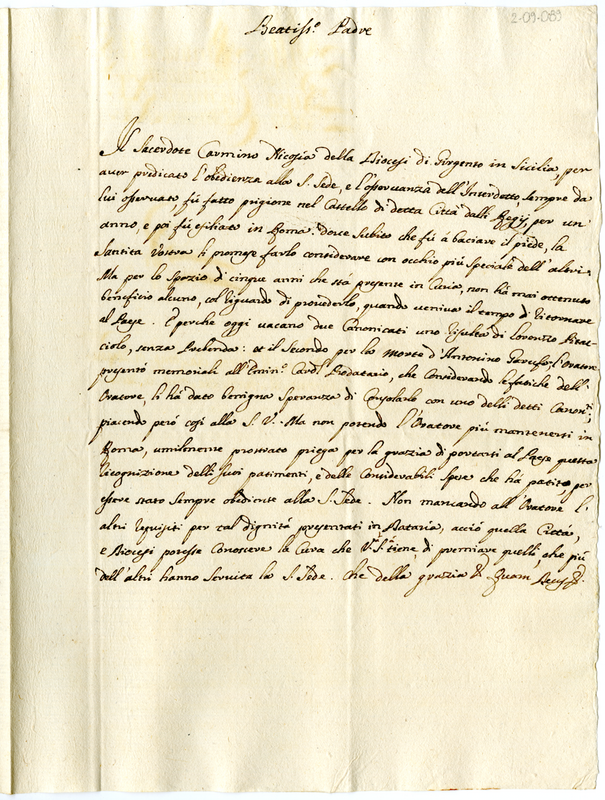 2-09-089
Beatiss.º Padre
Il Sacerdote Carmino Nicosia della Diocesi di Girgento in Sicilia, per
aver predicato l'obedienza alla S. Sede, e l'osservanza dell'Interdetto sempre da
lui osservato fù fatto prigione nel Castello di detta Città dalli Regij, per un
anno, e poi fù esiliato in Roma: dove subito che fù à baciare il piede, la
Santità Vostra li promese farlo considerare con occhio più speciale dell'altri.
Ma per lo spazio di cinque anni che stà presente in Curia, non hà mai ottenuto
beneficio alcuno, col riguardo di provederlo, quando veniva il tempo di ritornare
al Paese. E perche oggi vacano due Canonicati uno risulta di Lorenzo
ciolo, senza Prebenda: et il secondo per la morte d'Antonino l'Oratore
presentò memoriali all'Emin.º Card.l Prodatario, che considerando le fatiche dell'
Oratore, li hà dato benigna speranza di consolarlo con uno delli detti Canon.ti
piacendo però così alla S. V. Ma non potendo l'Oratore più mantenersi in
Roma, umilmente prostrato priega per la grazia di portarsi al Paese questa
ricognizione delli suoi patimenti, e delle considerabili spese che hà patito, per
essere stato sempre obediente alla S. Sede. Non mancando all'Oratore l'
altri requisiti per tal dignità presentati in Dataria, acciò quella Città,
e Diocesi potesse conoscere la cura che V. S.tà tiene, di premiare quelli, che più
dell'altri hanno servita la S. Sede. Che della grazia &. Quam Deus &.